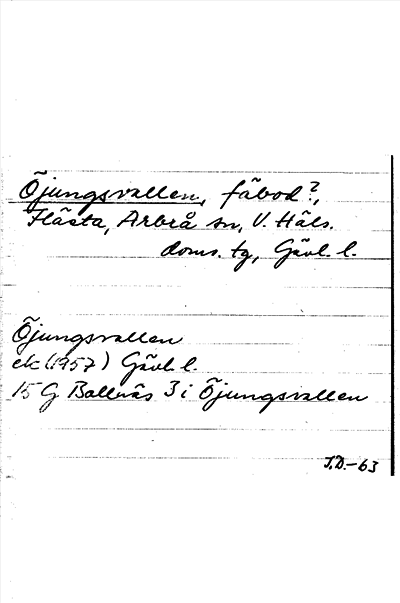 Öjungsvallen, fäbod?,
Flästa, Arbrå sn, V. Häls.
doms. tg, Gävl. l.
Öjungsvallen
ek (1957) Gävl. l.
15 G Bollnäs 3 i Öjungsvallen
T.D.-63